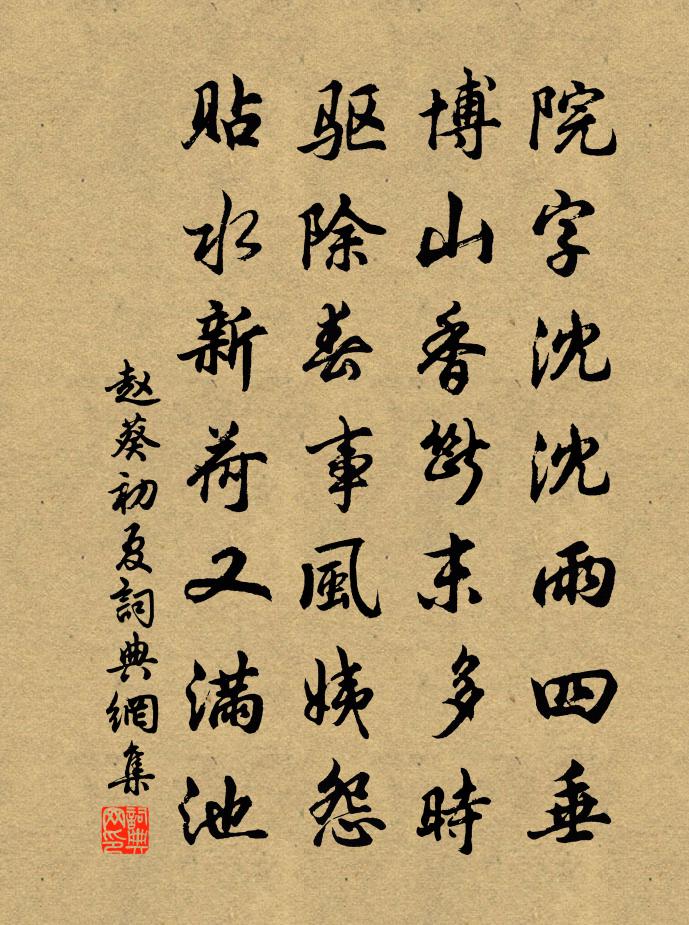 院字沈沈雨四垂
博山香斷未多時
驱除春事風姨怨
貼水新荷又滿池
赵葵初夏詞典網集
詞典网印